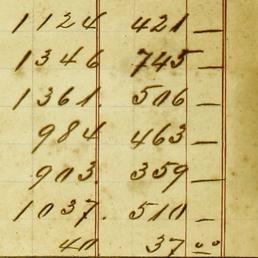 1124 421 —
1346 745 —
1361. 506 —
984 463 —
903. 359 —
1037. 510 —
40. 37 00